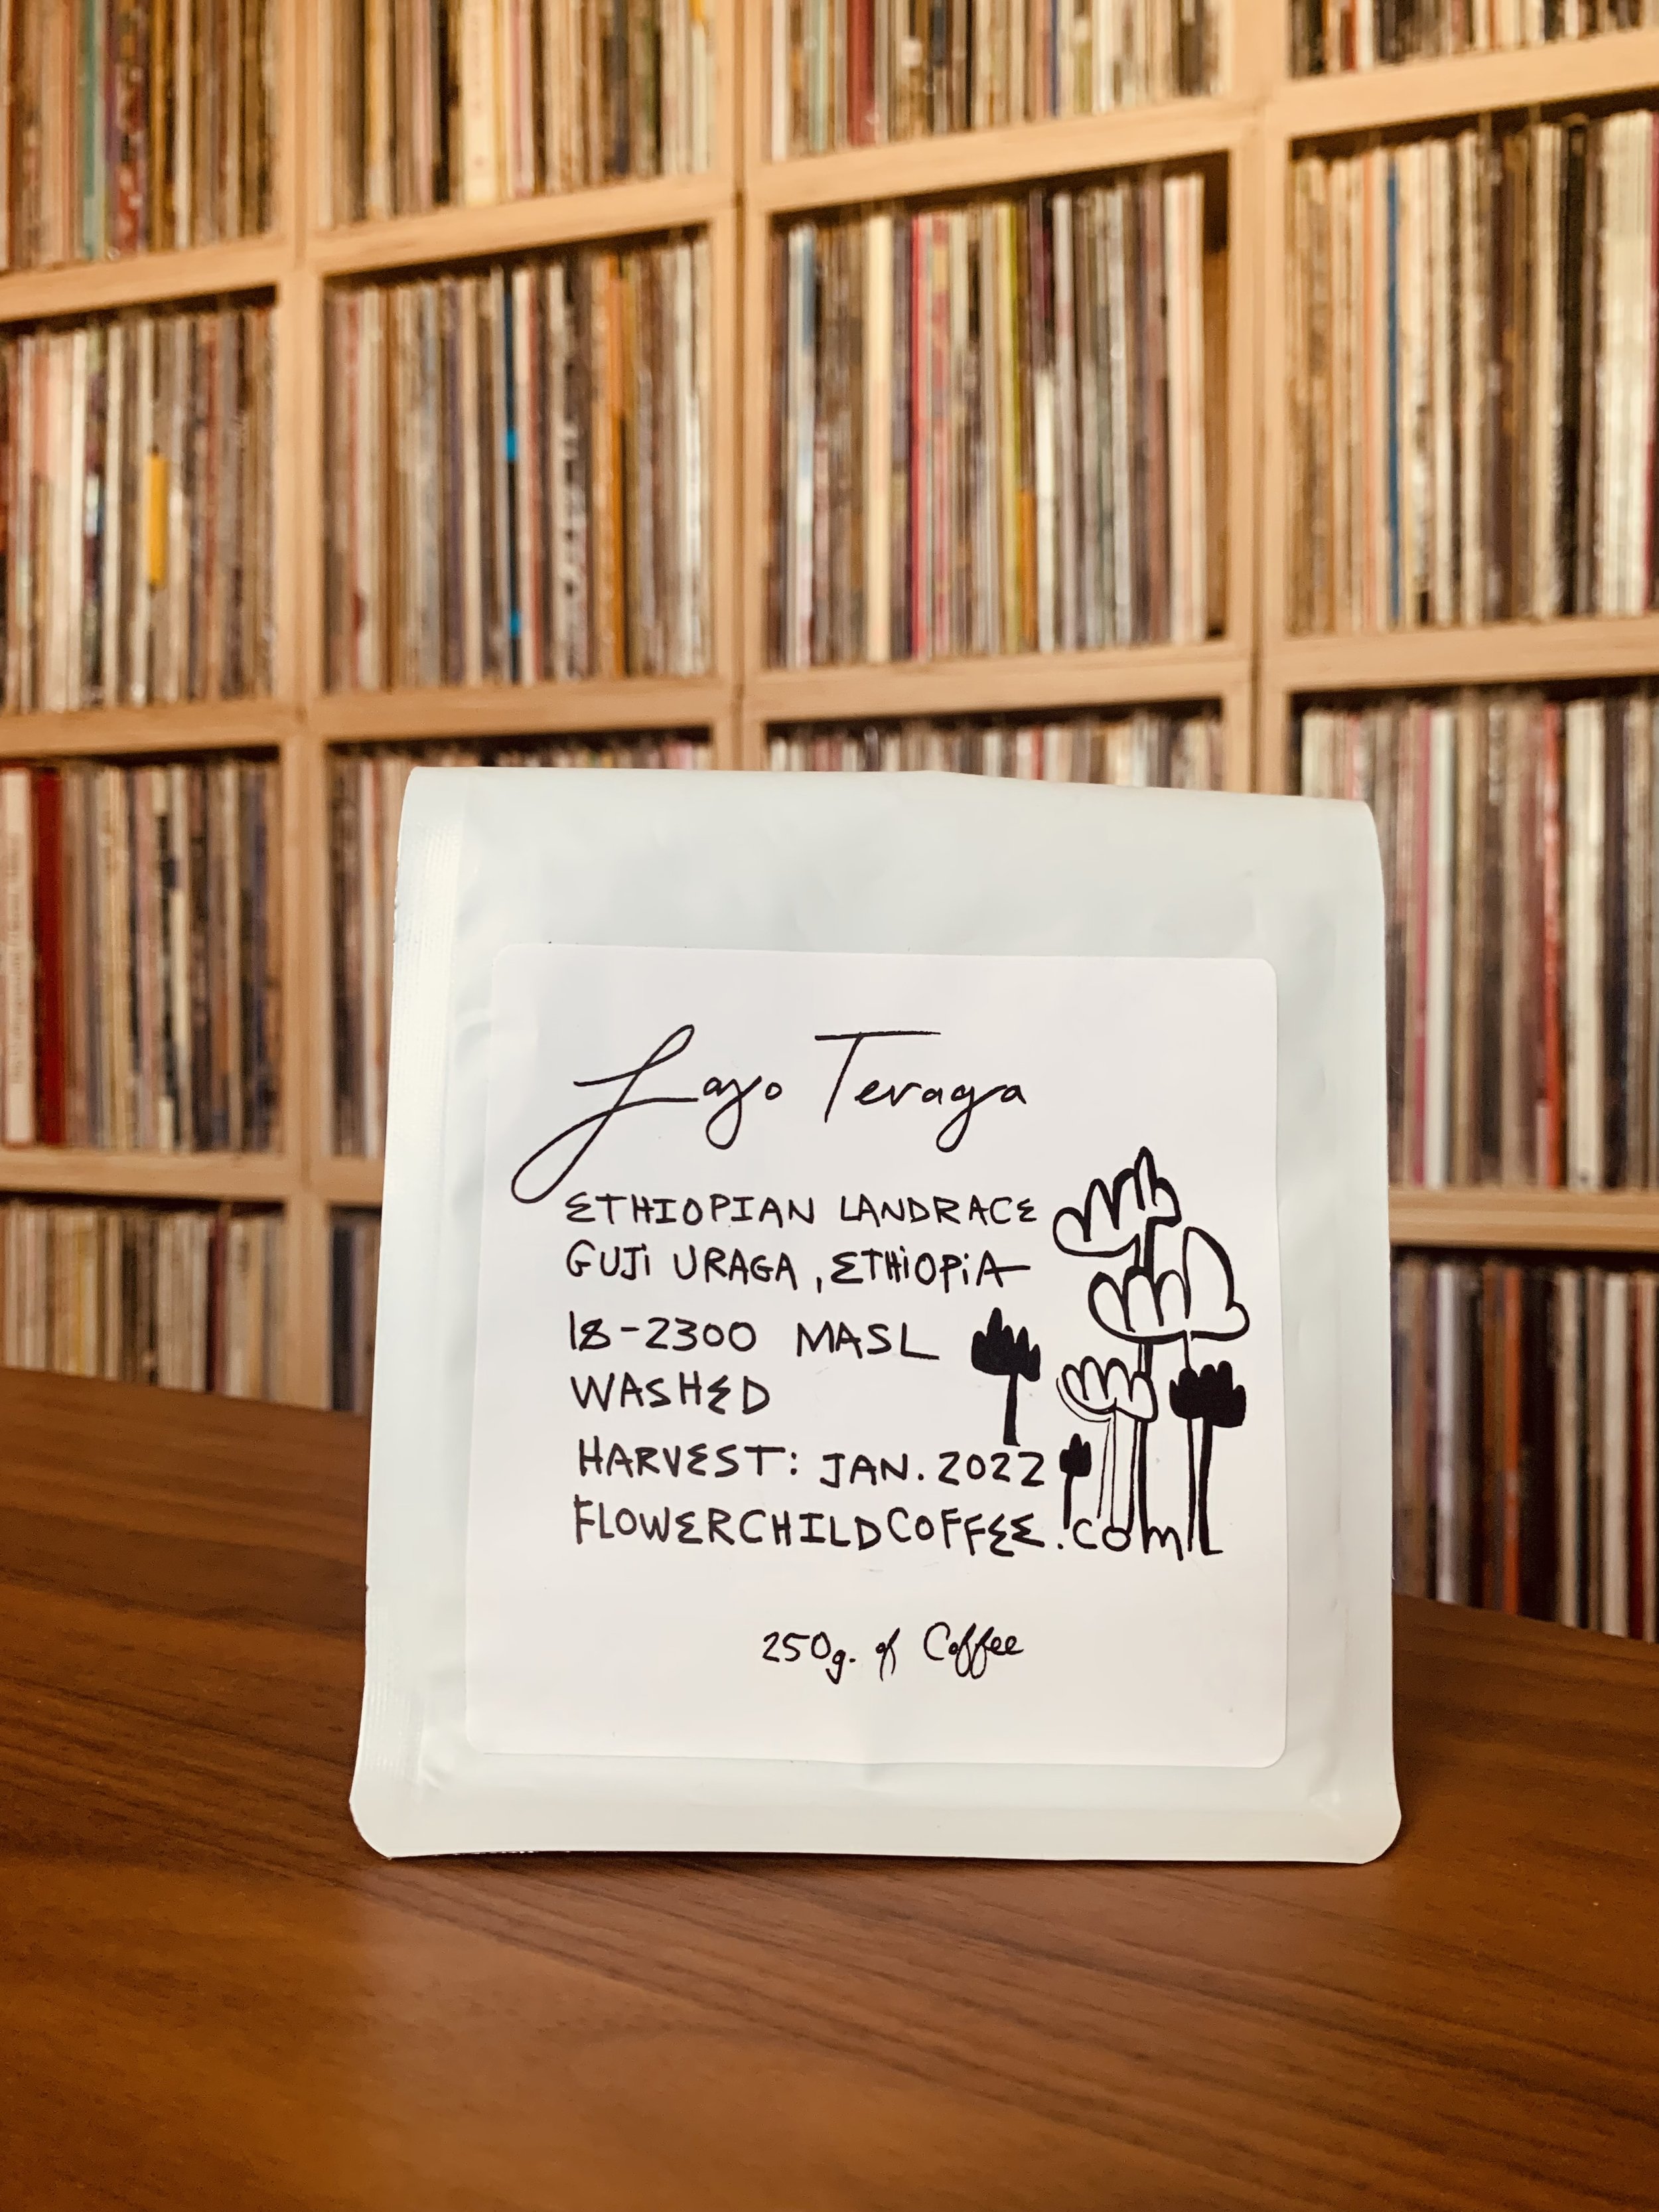 Layo Teraga
ETHIOPIAN LANDRACE
GUJI URAGA, ETHIOPIA
18-2300 MASL
WASHED
HARVEST: JAN. 2022
FLOWERCHILDCOFFEE.COM
250g. of Coffee